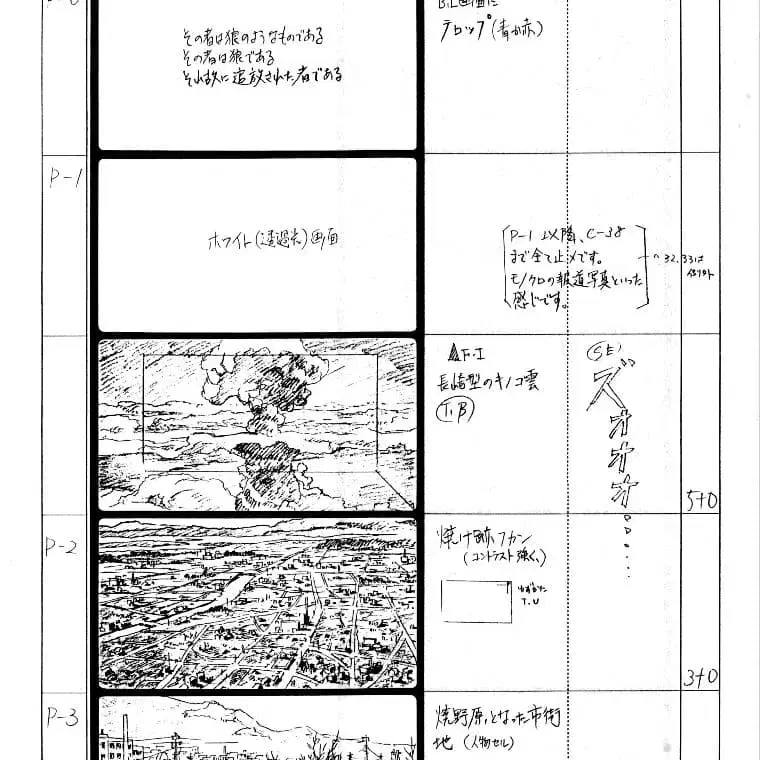 B.L画面に
テロップ(青か赤)
その者は狼のようなものである
その者は狼である
それ故に追放された者である
P-1
ホワイト(透過光)画面
P-1以降、C-38
まで全て止メです。
モノクロの報道写真といった
感じです。
32,33は
▲F・I
長崎型のキノコ雲
T.B
SE
ズオオオ。。。...
5+0
P-2
焼け跡フカン
(コントラスト強く、)
わずかに
T.U
3+0
P-3
焼野原となった市街
地 (人物セル)